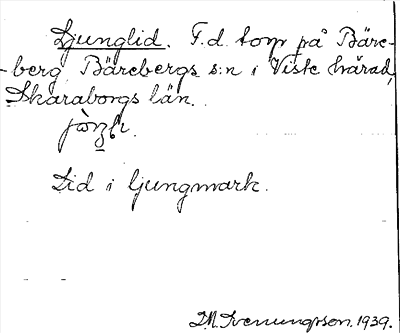 Ljunglid. F.d. torp på Bäre-
-berg, Bärebergs s:n i Viste härad,
Skaraborgs län.
Lid i ljungmark.
M. Svenungsson. 1939.